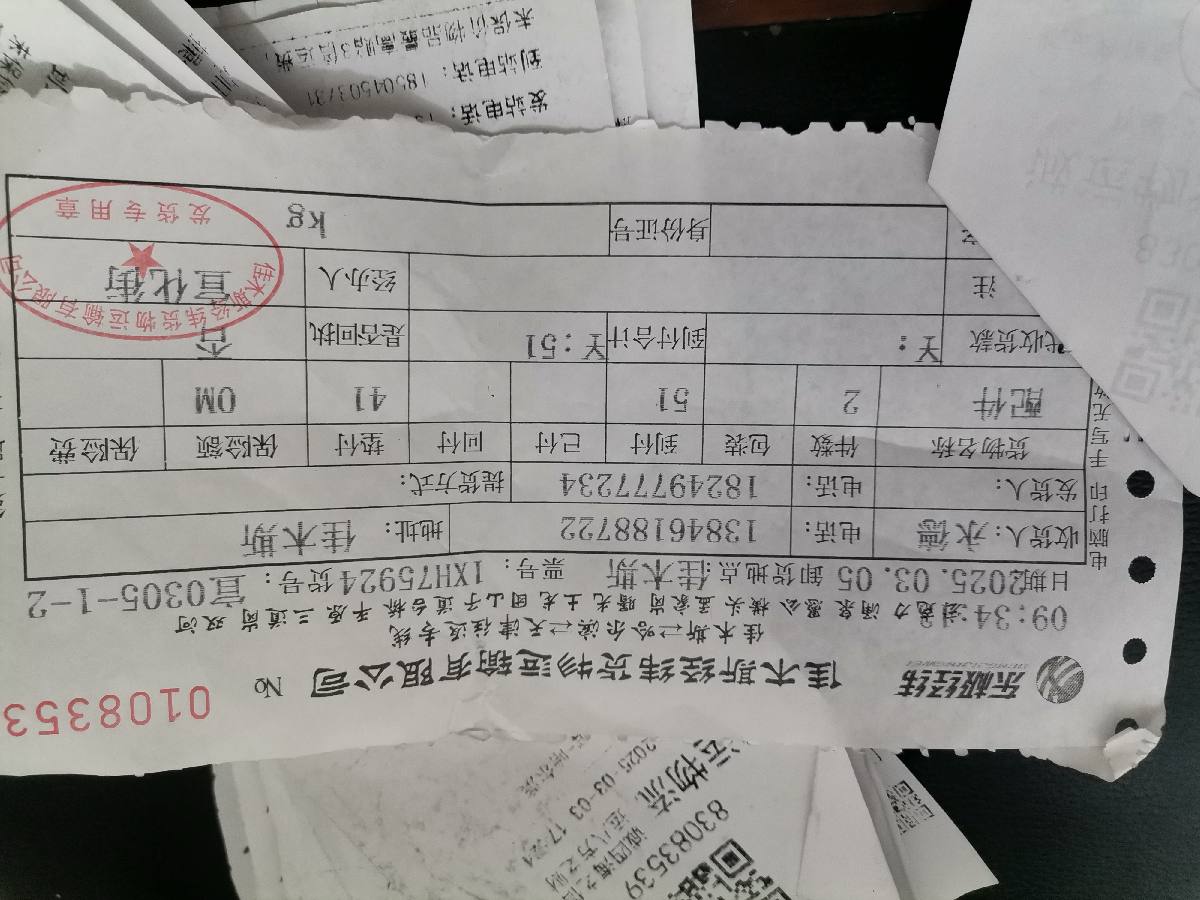 东极经纬
佳木斯经纬货物运输有限公司 No 0108353
佳木斯⇌哈尔滨⇌天津往返专线
双河
日期2025.03.05 卸货地点:佳木斯 票号:1XH75924 货号:宣0305-1-2
收货人:永德 电话: 13846188722 地址: 佳木斯
发货人: 电话: 18249777234 提货方式:
货物名称 件数 包装 到付 已付 回付 垫付 保险额 保险费
配件 2 51 41 0M
代收货款 ¥: 到付合计 ¥:51 是否回执 否
注 经办人 宣化街
身份证号 kg
电脑打印 手写无
佳木斯经纬货物运输有限公司
发货专用章
发站电话:
到站电话: 18504503731
未保价物品最高赔3倍运费,
83083539
运物流
诚四海之信
运八方之财
2025-03-03 17:24